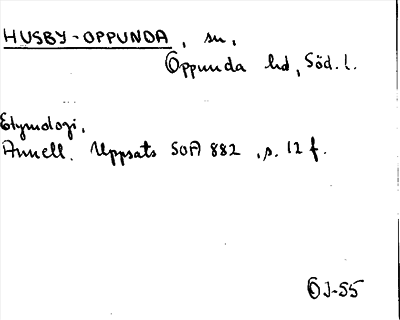 HUSBY-OPPUNDA, sn,
Oppunda hd, Söd. l.
Etymologi.
Annell. Uppsats SOA 882, s. 12 f.
OJ-55